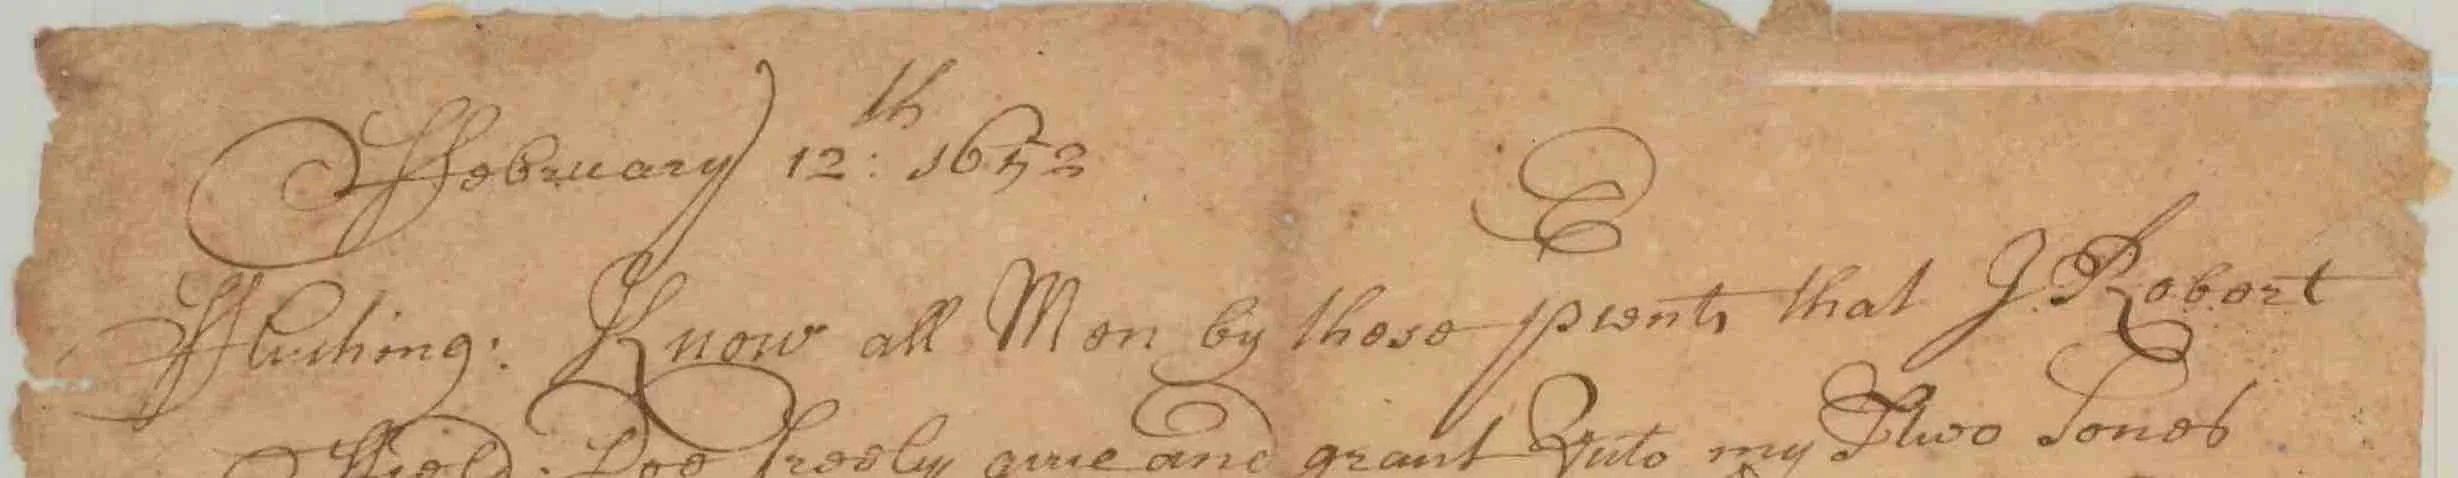 ffebruary 12th: 1652
E
fflushing: Know all Men by these psents that I Robert
ffield: Doe freely give and grant Unto my Two Sones